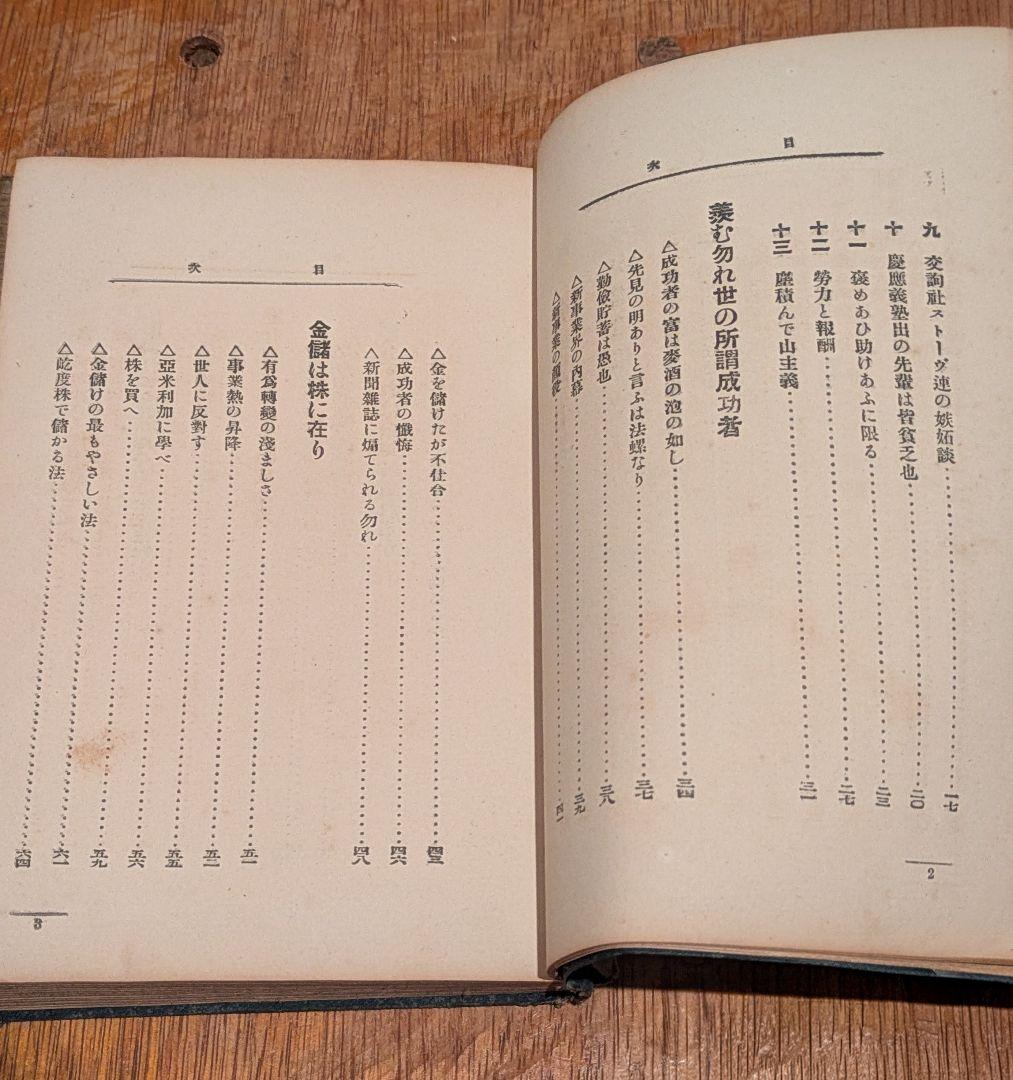 目次
九 交詢社ストーヴ連の嫉妬談 一七
十 慶應義塾出の先輩は皆貧乏也 二〇
十一 褒めあひ助けあふに限る 二三
十二 勞力と報酬 二七
十三 塵積んで山主義 三一
羨む勿れ世の所謂成功者
△成功者の富は麥酒の泡の如し 三四
△先見の明ありと言ふは法螺なり 三七
△勤儉貯蓄は愚也 三八
△新事業界の內幕 三九
事業の 四一
2
目次
△金を儲けたが不仕合 四三
△成功者の懺悔 四六
△新聞雜誌に煽てられる勿れ 四八
金儲は株に在り
△有爲轉變の淺ましさ 五一
△事業熱の昇降 五二
△世人に反對す 五五
△亞米利加に學べ 五六
△株を買へ 五九
△金儲けの最もやさしい法 六一
△屹度株で儲かる法 六四
3